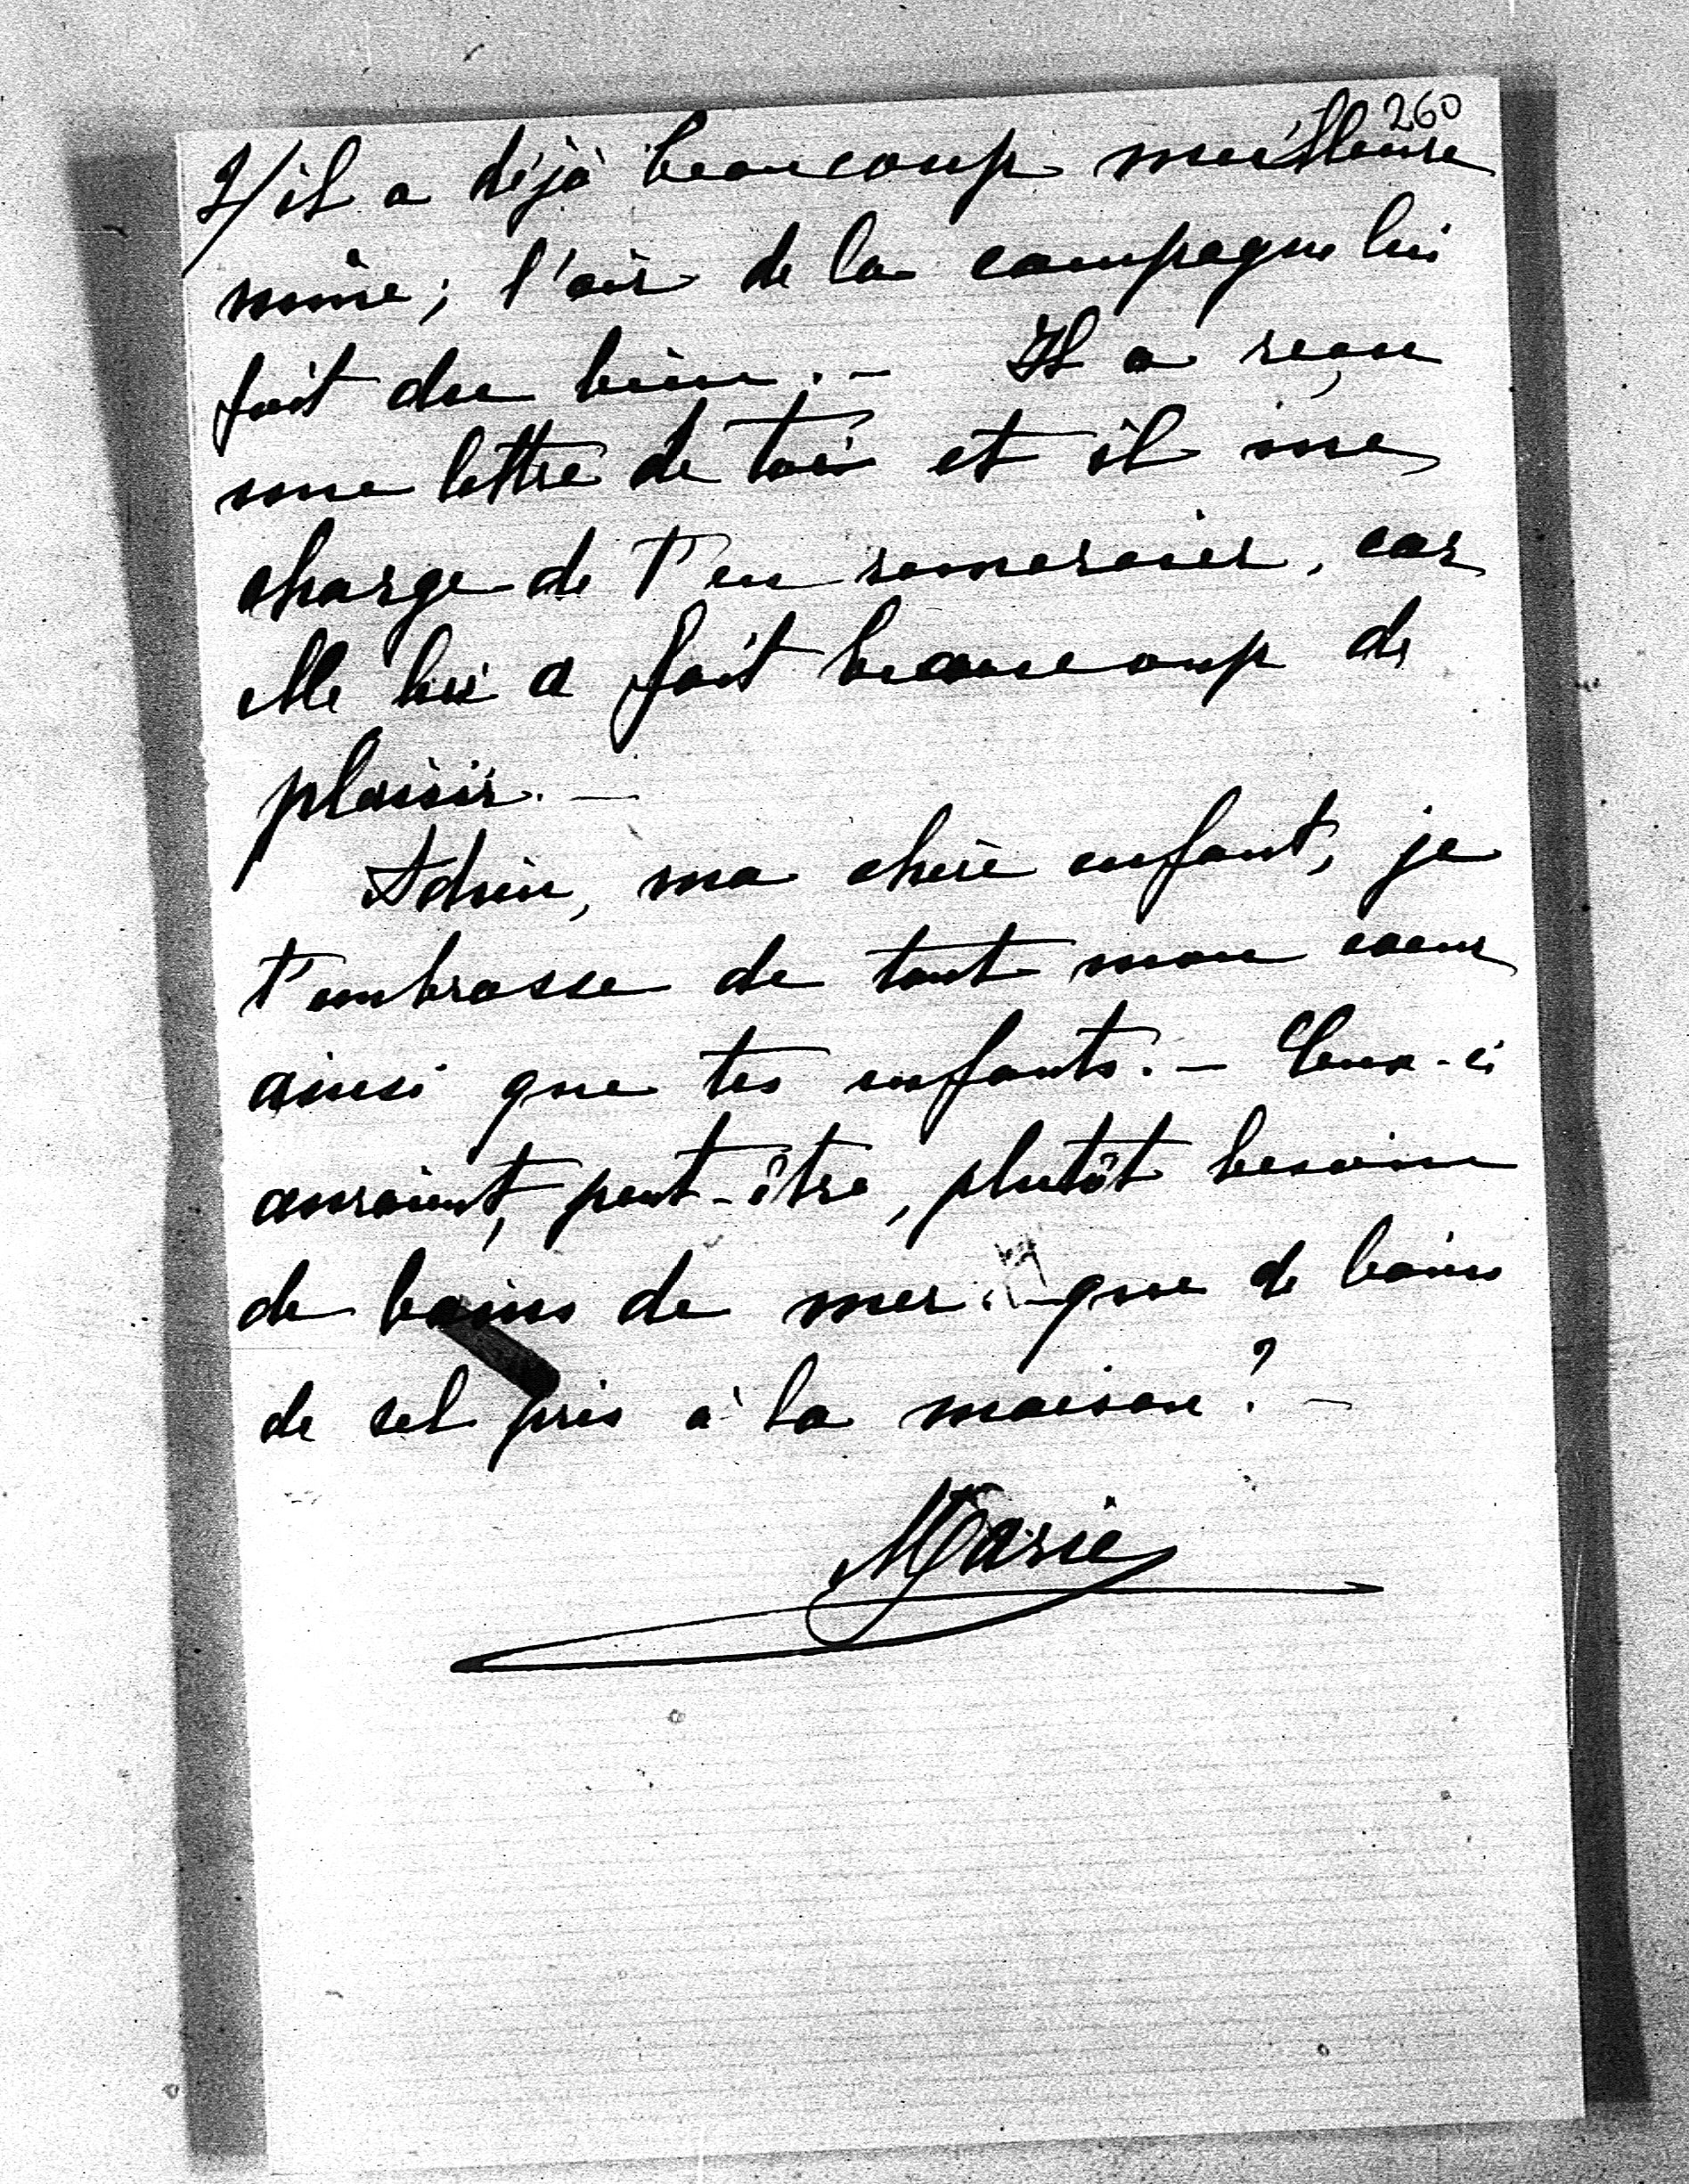 260
2/ il a déjà beaucoup meilleure
mine; l'air de la campagne lui
fait du bien. – Il a reçu
une lettre de toi et il me
charge de t'en remercier, car
elle lui a fait beaucoup de
plaisir. –
Adieu, ma chère enfant, je
t'embrasse de tout mon coeur
ainsi que tes enfants. – Ceux-ci
auraient, peut-être, plutôt besoin
de bains de mer. que de bains
de sel pris à la maison? –
Marie